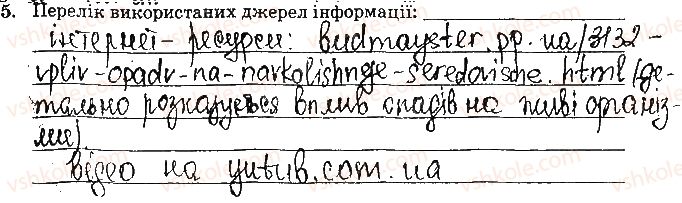 5. Перелік використаних джерел інформації:
інтернет-ресурси: budmayster.pp.ua/3132-
vpliv-opadv-na-navkolishnge-seredovische.html (де-
тально розказується вплив опадів на живі організ-
ми).
відео на yutub.com.ua